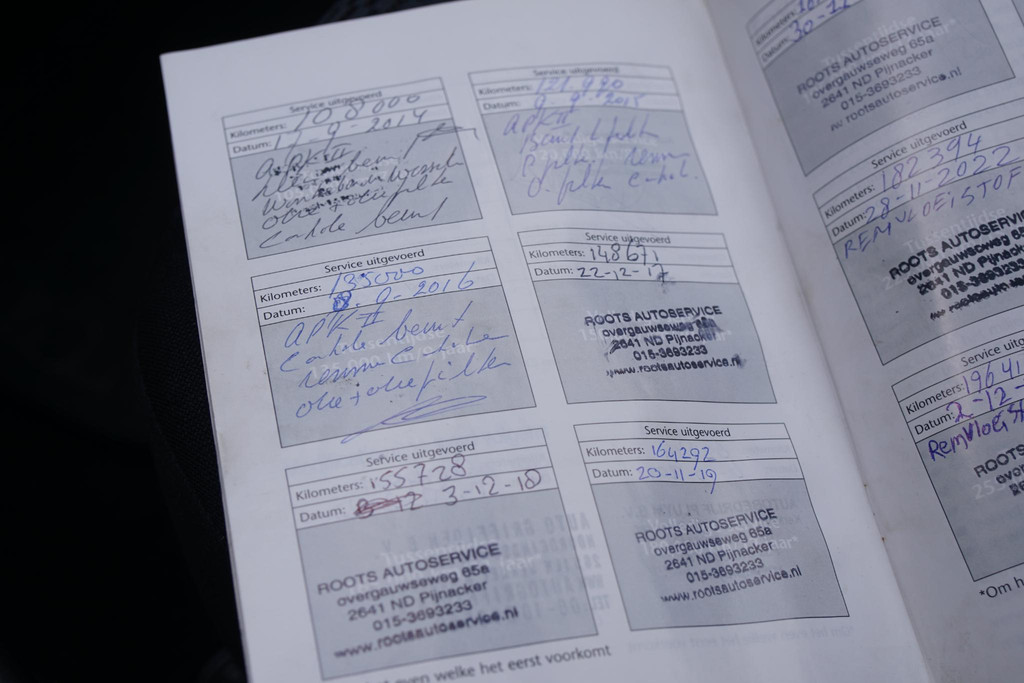 Service uitgevoerd
Kilometers: 108000
Datum: 9-2014
APK II
olie + oliefilter
Controle beurt
Service uitgevoerd
Kilometers: 121.980
Datum: 9-9-2015
APK II
Service uitgevoerd
Kilometers: 135000
Datum: 8.9-2016
APK II
Controle beurt
olie + oliefilter
Service uitgevoerd
Kilometers: 148671
Datum: 22-12-17
ROOTS AUTOSERVICE
overgauwseweg 65a
2641 ND Pijnacker
015-3693233
www.rootsautoservice.nl
Service uitgevoerd
Kilometers: 155728
Datum: 3-12-18
ROOTS AUTOSERVICE
overgauwseweg 65a
2641 ND Pijnacker
015-3693233
www.rootsautoservice.nl
Service uitgevoerd
Kilometers: 164292
Datum: 20-11-19
ROOTS AUTOSERVICE
overgauwseweg 65a
2641 ND Pijnacker
015-3693233
www.rootsautoservice.nl
even welke het eerst voorkomt
Kilometers:
Datum: 30-11
ROOTS AUTOSERVICE
overgauwseweg 65a
2641 ND Pijnacker
015-3693233
rootsautoservice.nl
Service uitgevoerd
Kilometers: 182394
Datum: 28-11-2022
REMVLOEISTOF
ROOTS AUTOSERVI
overgauwseweg 65
2641 ND Pijnack
015-36932
Service uitg
Kilometers: 19641
Datum: 2-12-
Remvloeist
ROOTS
*Om h